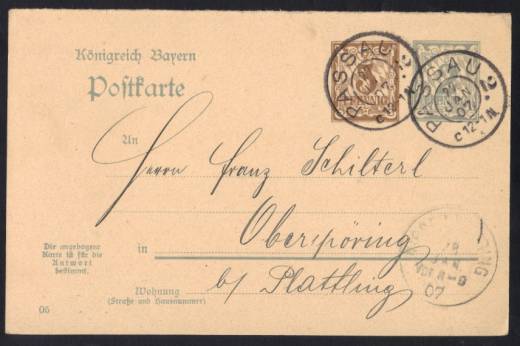 Königreich Bayern
Postkarte
PASSAU 2.
JAN
07.
C 12-1N.
PASSAU 2.
JAN
07.
C 12-1N.
An
Herrn Franz Schilterl
Oberpöring
in
b/ Plattling
Die angebogene
Karte ist für die
Antwort
bestimmt.
Wohnung
(Straße und Hausnummer)
07
06